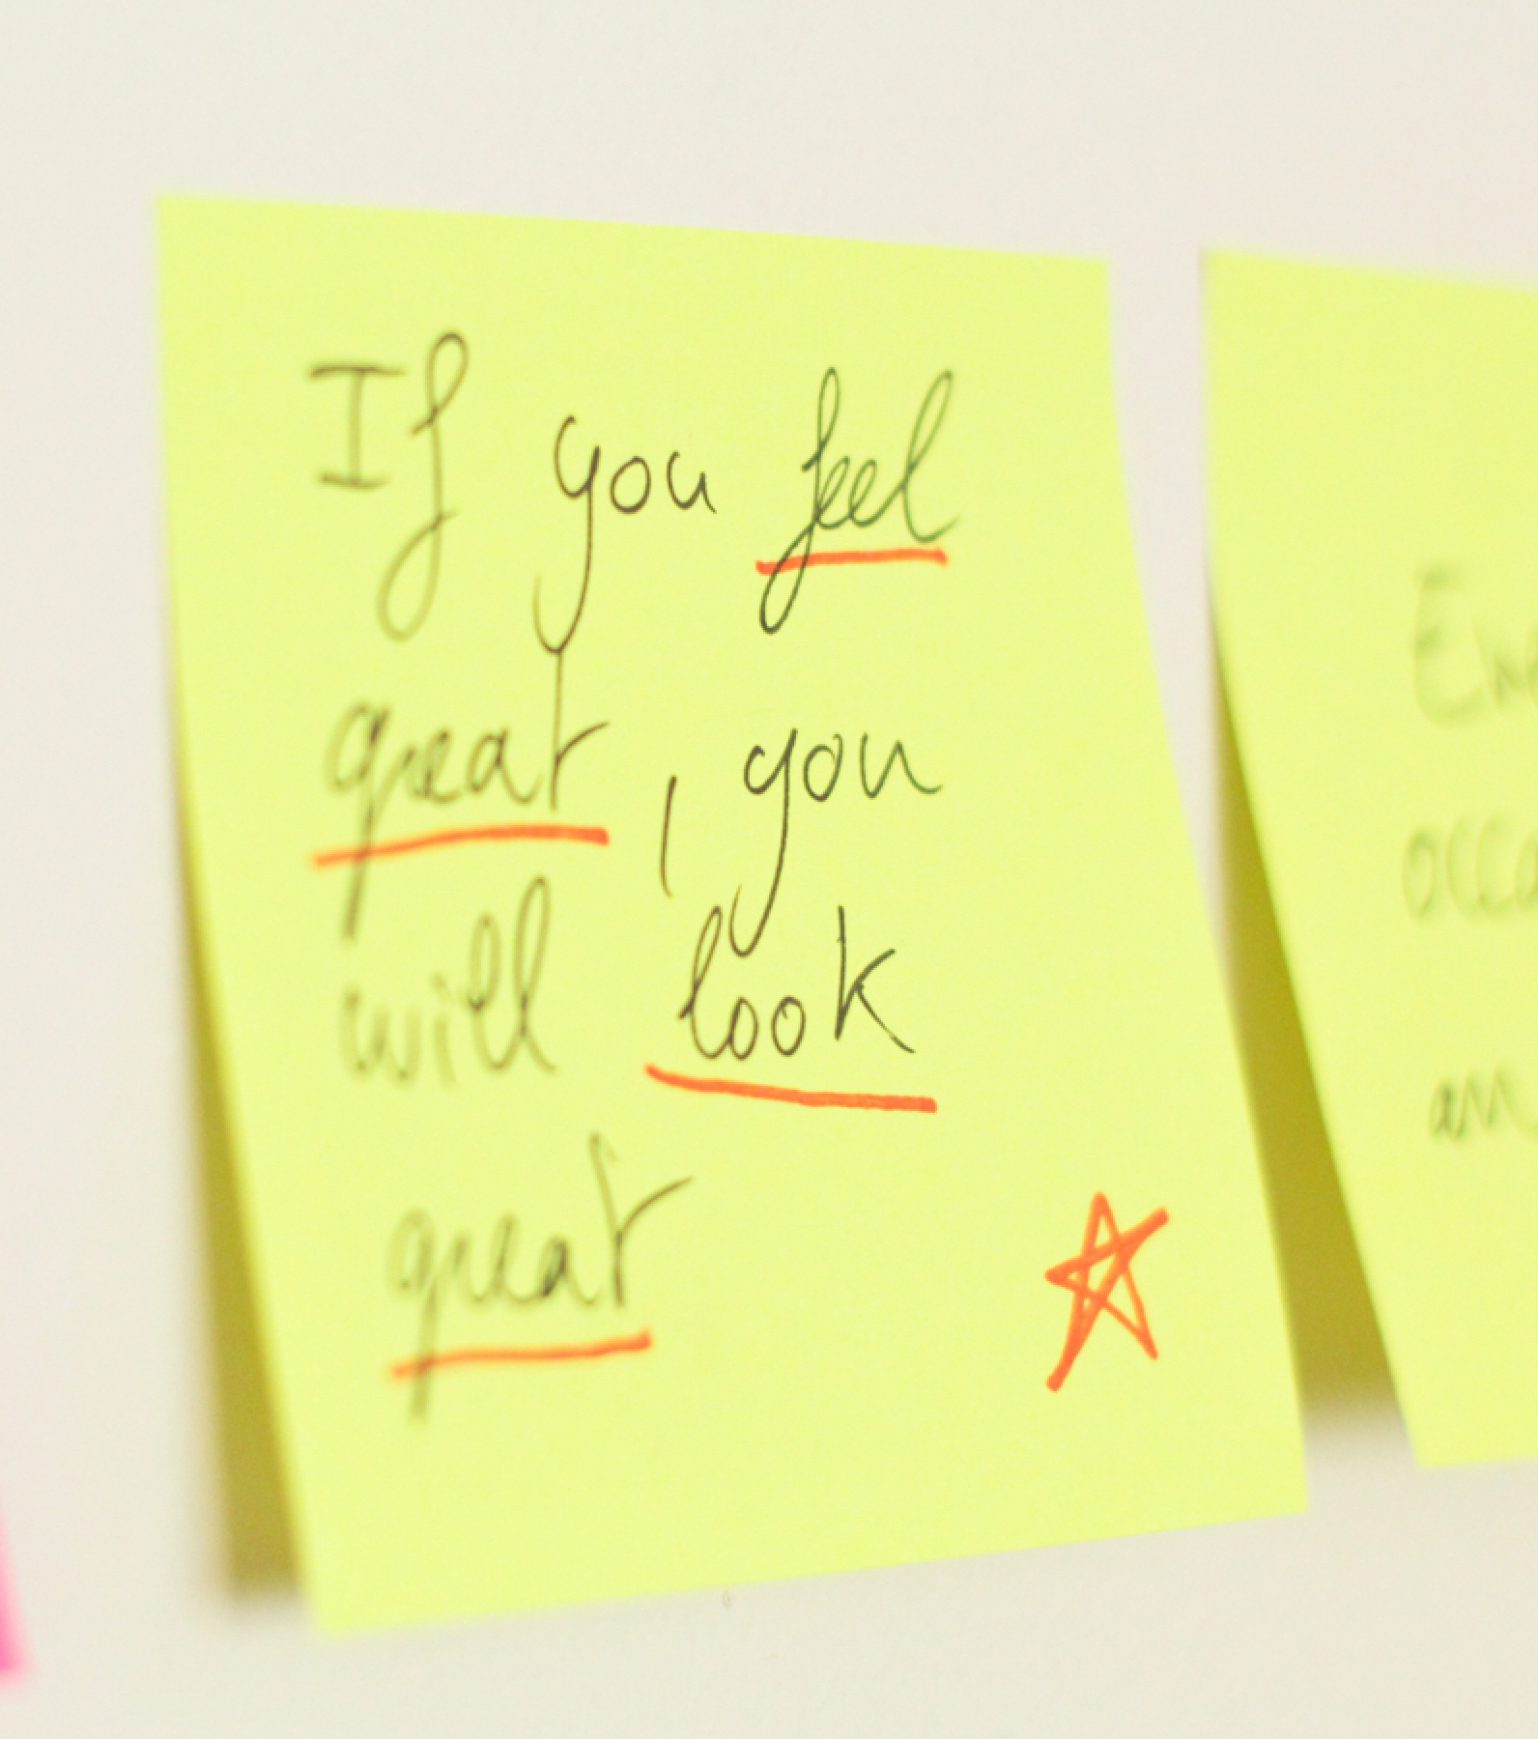 If you feel
great, you
will look
great